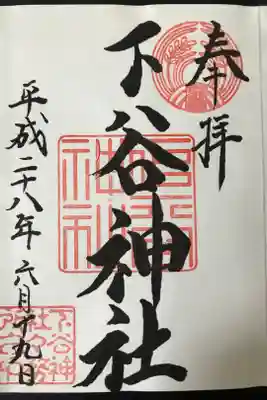 奉拝
下谷神社
平成二十八年六月十九日